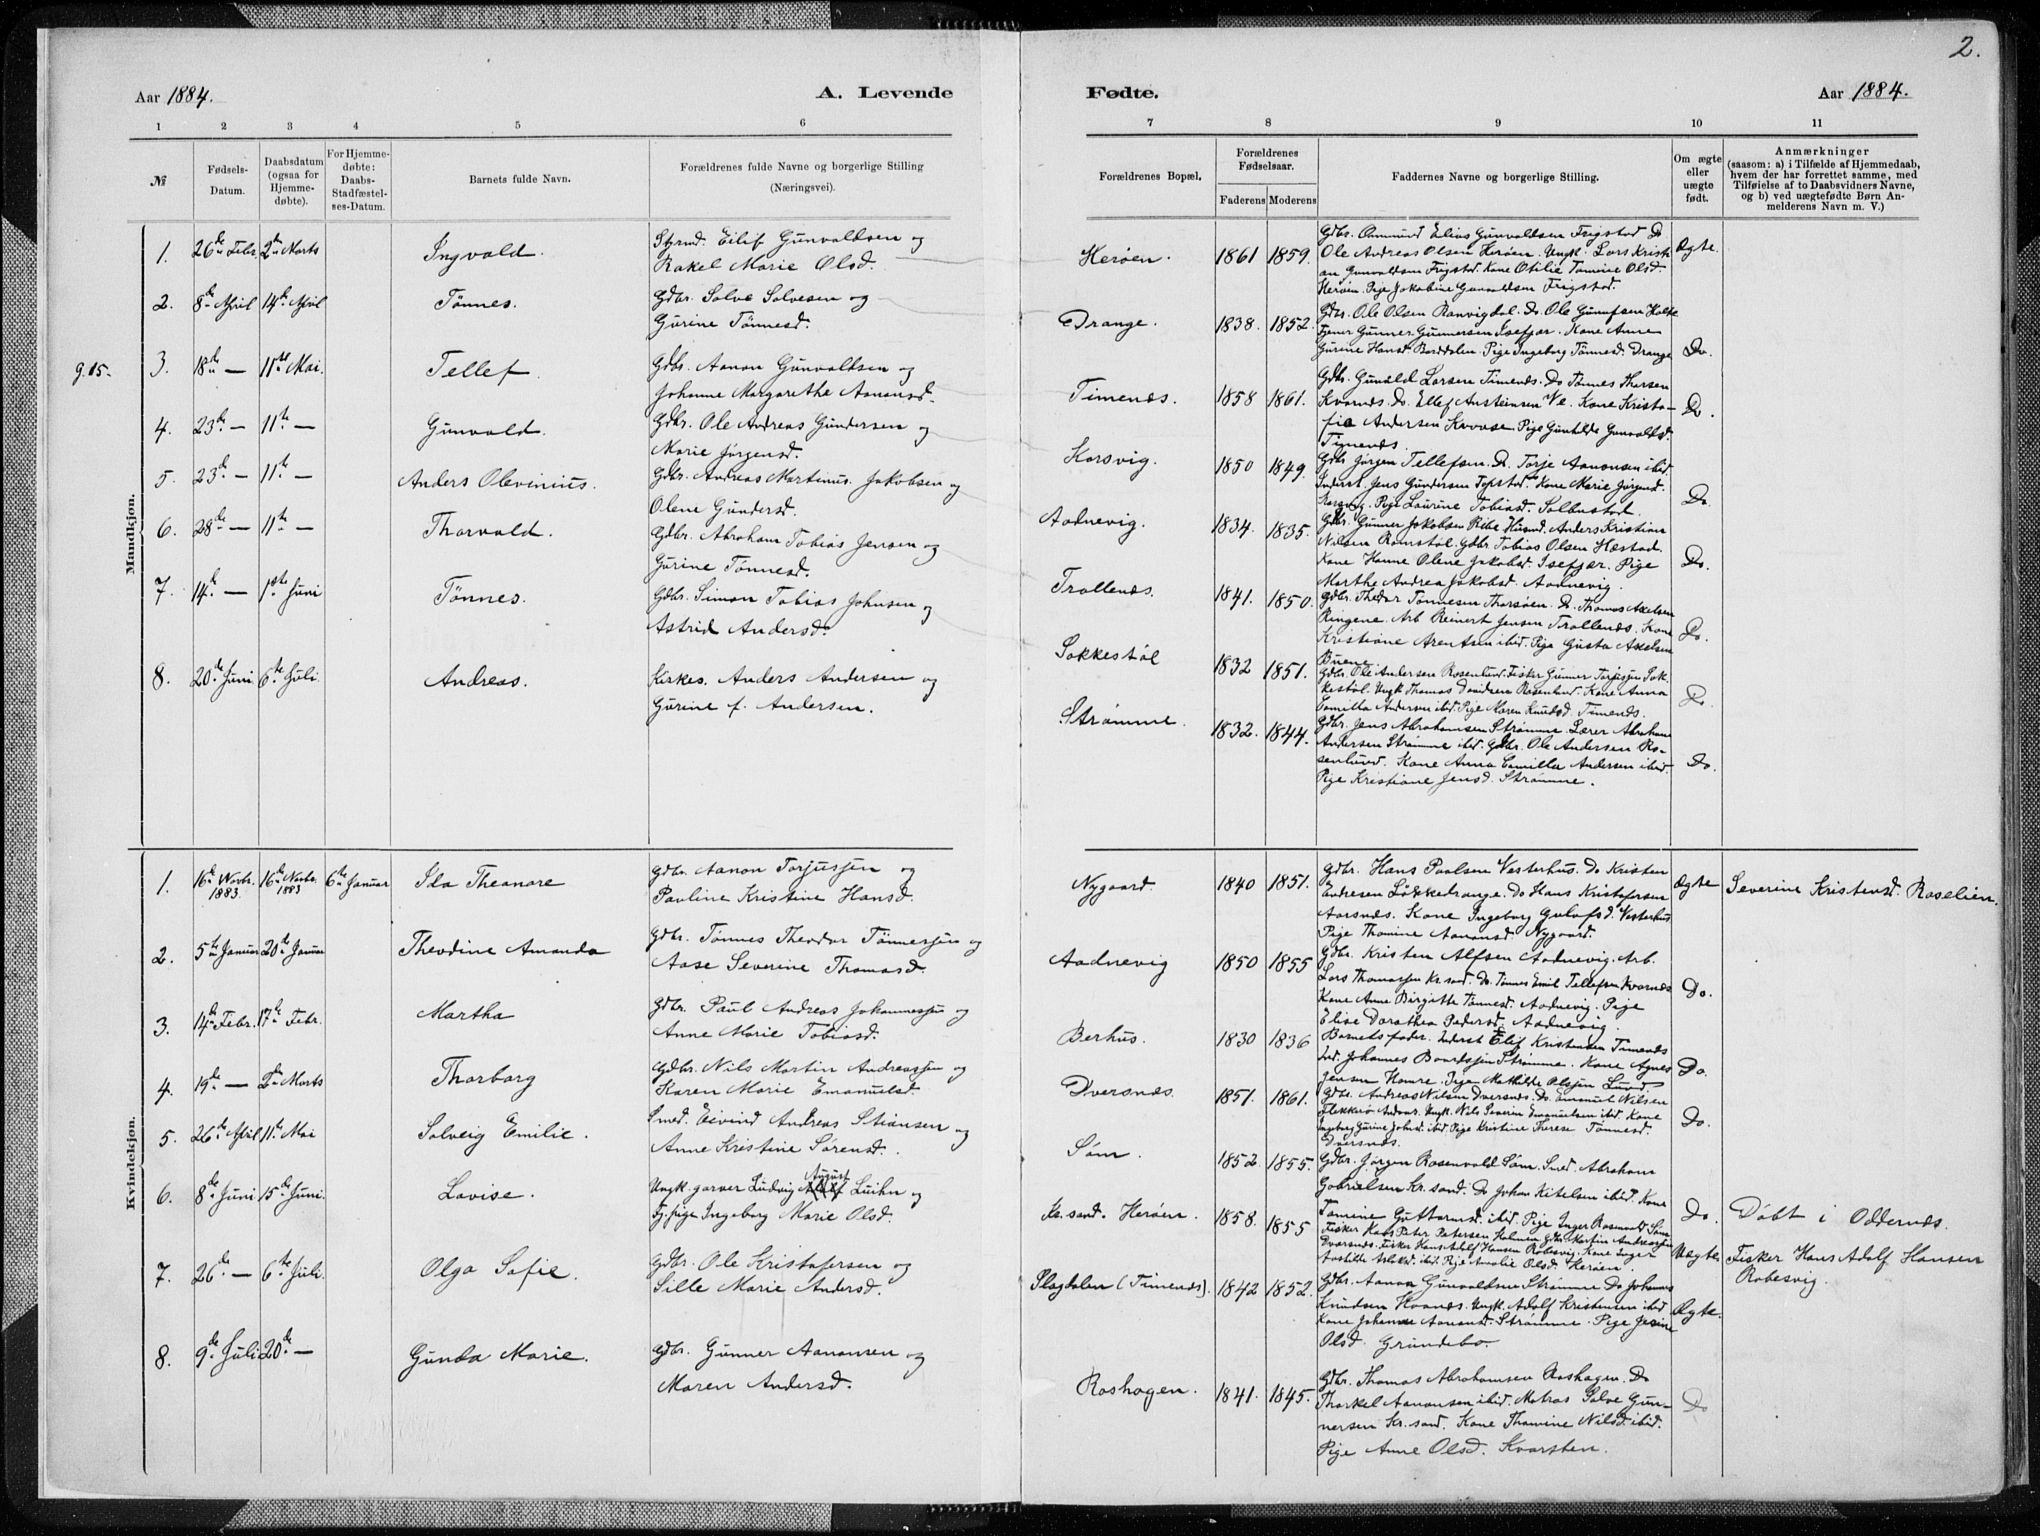 2.
Aar 1884.
A. Levende
Fødte.
Aar 1884.
1 2 3 4 5 6 7 8 9 10 11
№
Fødsels-Datum.
Daabsdatum (ogsaa for Hjemme-døbte).
For Hjemme-døbte: Daabs-Stadfæstel-ses-Datum.
Barnets fulde Navn.
Forældrenes fulde Navne og borgerlige Stilling
(Næringsvei).
Forældrenes Bopæl.
Forældrenes Fødselsaar.
Faderens Moderens
Faddernes Navne og borgerlige Stilling.
Om ægte eller uægte født.
Anmærkninger
(saasom: a) i Tilfælde af Hjemmedaab,
hvem der har forrettet samme, med
Tilføielse af to Daabsvidners Navne,
og b) ved uægtefødte Børn An-
melderens Navn m. V.)
Mandkjøn.
1. 26de Febr. 2den Marts Ingvald.
Styrmd. Eilif Gunvaldsen og
Rakel Marie Olsd.
Herøen. 1861 1859.
Gdbr. Aanund Elias Gunvaldsen Frigstad Do
Ole Andreas Olsen Herøen. Ungk. Lars Kristi-
an Gunvaldsen Frigstad. Kone Otilie Tomine Olsd.
Herøen. Pige Jakobine Gunvaldsen Frigstad.
Ægte.
2. 8de April 14de April Tønnes.
Gdbr. Salve Salvesen og
Gurine Tønnesd.
Drange. 1838. 1852.
Gdbr. Ole Olsen Ranvigdal. Do. Ole Gunufsen Holte
Tjener Gunner Gunnersen Isefjær. Kone Anne
Gurine Hansd. Borddalen. Pige Ingeborg Tønnesd. Drange
Do.
g. 15.
3. 18de — 11te Mai. Tellef.
Gdbr. Aanon Gunvaldsen og
Johanne Margarethe Aanonsd.
Timenes. 1858 1861.
Gdbr. Gunvald Larsen Timenes. Do Tønnes Thorsen
Kvarnes. Do. Ellef Austeinsen Ve. Kone Kristo-
fie Andersen Kvaase. Pige Gunhilde Gunvaldsd.
Timenes.
Do.
4. 23de — 11te — Gunvald.
Gdbr. Ole Andreas Gundersen og
Marie Jørgensd.
Korsvig. 1850 1849.
Gdbr Jørgen Tellefsen. Do. Torje Aanonsen ibid.
Inderst Jens Gundersen Topstad. Kone Marie Jørgensd.
Korsvig. Pige Laurine Tobiasd. Salbustad.
Do.
5. 23de — 11te — Anders Olevinius.
Gdbr. Andreas Martinus Jakobsen og
Olene Gundersd.
Aadnevig. 1834. 1835.
Gdbr. Gunner Jakobsen Ribe Husmd. Anders Kristian
Nilsen Romstøl. Gdbr. Tobias Olsen Hæstad.
Kone Hanne Olene Jakobsd. Isefjær. Pige
Marthe Andrea Jakobsd. Aadnevig.
Do.
6. 28de — 11te — Thorvald.
Gdbr. Abraham Tobias Jensen og
Gurine Tønnesd.
Trollenes. 1841. 1850.
Gdbr. Thedor Tønnesen Thorsøen. Do. Thomas Axelsen
Ringene. Arb Reinert Jensen Trollenes. Kone
Kristiane Arentsen ibid. Pige Gusta Axelsen
Buene.
Do.
7. 14de — 1ste Juni Tønnes.
Gdbr. Simon Tobias Johnsen og
Astrid Andersd.
Sokkestøl 1832 1851.
Gdbr. Ole Andersen Rosenlund. Fisker Gunner Torjusjen Sok-
kestøl. Ungk Thomas Davidsen Rosenlund. Kone Anna
Camilla Andersen ibid. Pige Maren Knudsd. Timenes.
Do
8. 20de Juni 6te Juli. Andreas.
Kirkes. Anders Andersen og
Gurine f. Andersen.
Strømme. 1832. 1844.
Gdbr. Jens Abrahamsen Strømme. Lærer Abraham
Andersen Strømme ibid. Gdbr. Ole Andersen Ro-
senlund. Kone Anna Camilla Andersen ibid.
Pige Kristiane Jensd. Strømme.
Do.
Kvindekjøn.
1. 16de Novbr. 1883. 16de Novbr. 1883 6te Januar Ida Theanore
Gdbr. Aanon Torjusjen og
Pauline Kristine Hansd.
Nygaard. 1840 1851.
Gdbr. Hans Paulsen Vesterhus. Do Kristen
Andresen Lødkedrange. Do Hans Kristofersen
Aarsnes. Kone Ingeborg Gulufsd. Vesterhus
Pige Thomine Aanonsd. Nygaard.
Ægte
Severine Kristensd. Roselien.
2. 5te Januar 20de Januar Theodine Amanda
Gdbr. Tønnes Theodor Tønnesjen og
Aase Severine Thomasd.
Aadnevig 1850 1855
Gdbr. Kristen Alfsen Aadnevig. Arb.
Lars Thomassen Kr.sand. Do. Tønnes Emil Tellefsen Kvarnes
Kone Anne Birgitte Tønnesd. Aadnevig. Pige
Elise Dorothea Pedersd. Aadnevig.
Do.
3. 14de Febr. 17de Febr. Martha
Gdbr. Paul Andreas Johannesjen og
Anne Marie Tobiasd.
Berhus. 1830 1836
Barnets fader. Inderst Elef Kristensen Timenes
Ind. Johannes Baardsjen Strømme. Kone Agnes
Jensen Hamre. Pige Mathilde Olsjen Lund.
Do.
4. 19de — 2den Marts Thorborg
Gdbr. Nils Martin Andreassen og
Karen Marie Emanuelsd.
Dversnes. 1851. 1861.
Gdbr. Andreas Nilsen Dversnes. Do. Emanuel Nilsen
Flekkerø Andaas. Ungk. Nils Severin Emanuelsen ibid. Kone
Ingeborg Gurine Johnsd. ibid. Pige Kristine Therese Tønnesd.
Dversnes.
Do.
5. 26de April 11te Mai Solveig Emilie.
Smed. Eivind Andreas Stiansen og
Anne Kristine Sørensd.
Søm. 1852. 1855.
Gdbr. Jørgen Rosenvold Søm. Smed. Abraham
Gabrielsen Kr.sand. Do Johan Kitelsen ibid. Kone
Tomine Guttormsd. ibid. Pige Inger Rosenvold Søm
Do.
Døbt i Oddernes.
6. 8de Juni 15de Juni. Lovise.
Ungk. garver Ludvig August Luihn og
Fj. pige Ingeborg Marie Olsd.
Kr.sand. Herøen. 1858. 1855
Fisker Hans Peter Petersen Holmen Gdbr. Martin Andreasjen
Dversnes. Fisker Hans Adolf Hansen Robesvig. Kone Inger
ibid. Pige Amalie Olsd. Herøen.
Uægte
Fisker Hans Adolf Hansen
Robesvig.
7. 26de — 6te Juli. Olga Sofie.
Gdbr. Ole Kristofersen og
Sille Marie Andersd.
Slagdalen (Timenes). 1842 1852.
Gdbr. Aanon Gunvaldsen Strømme Do Johannes
Knudsen Hvanes. Ungk. Adolf Kristensen ibid
Kone Johanne Aanonsd. Strømme. Pige Jesine
Olsd. Grundebo.
Ægte.
8. 9de Juli 20de — Gunda Marie.
Gdbr. Gunner Aanonsen og
Maren Andersd.
Roshagen. 1841. 1845.
Gdbr. Thomas Abrahamsen Roshagen. Do
Thorkel Aanonsen ibid. Matros Salve Gun-
nersen Kr.sand. Kone Thomine Nilsd. ibid.
Pige Anne Olsd. Kvarsten.
Do